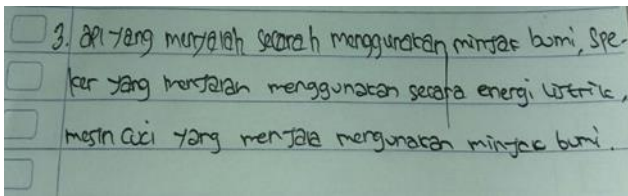 3. api yang menyalah secarah menggunakan minjak bomi, spe-
ker yang menjalan menggunakan secara energi listrik,
mesin cuci yang menjala mengunakan minjak bumi.